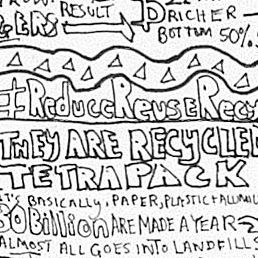 RESULT RICHER
ERS BOTTOM 50%
#ReduceReuseRecy
THEY ARE RECYCLED
TETRAPACK
IT'S BASICALLY, PAPER, PLASTIC + ALUMIN
80 Billion ARE MADE A YEAR
ALMOST ALL GOES INTO LANDFILLS